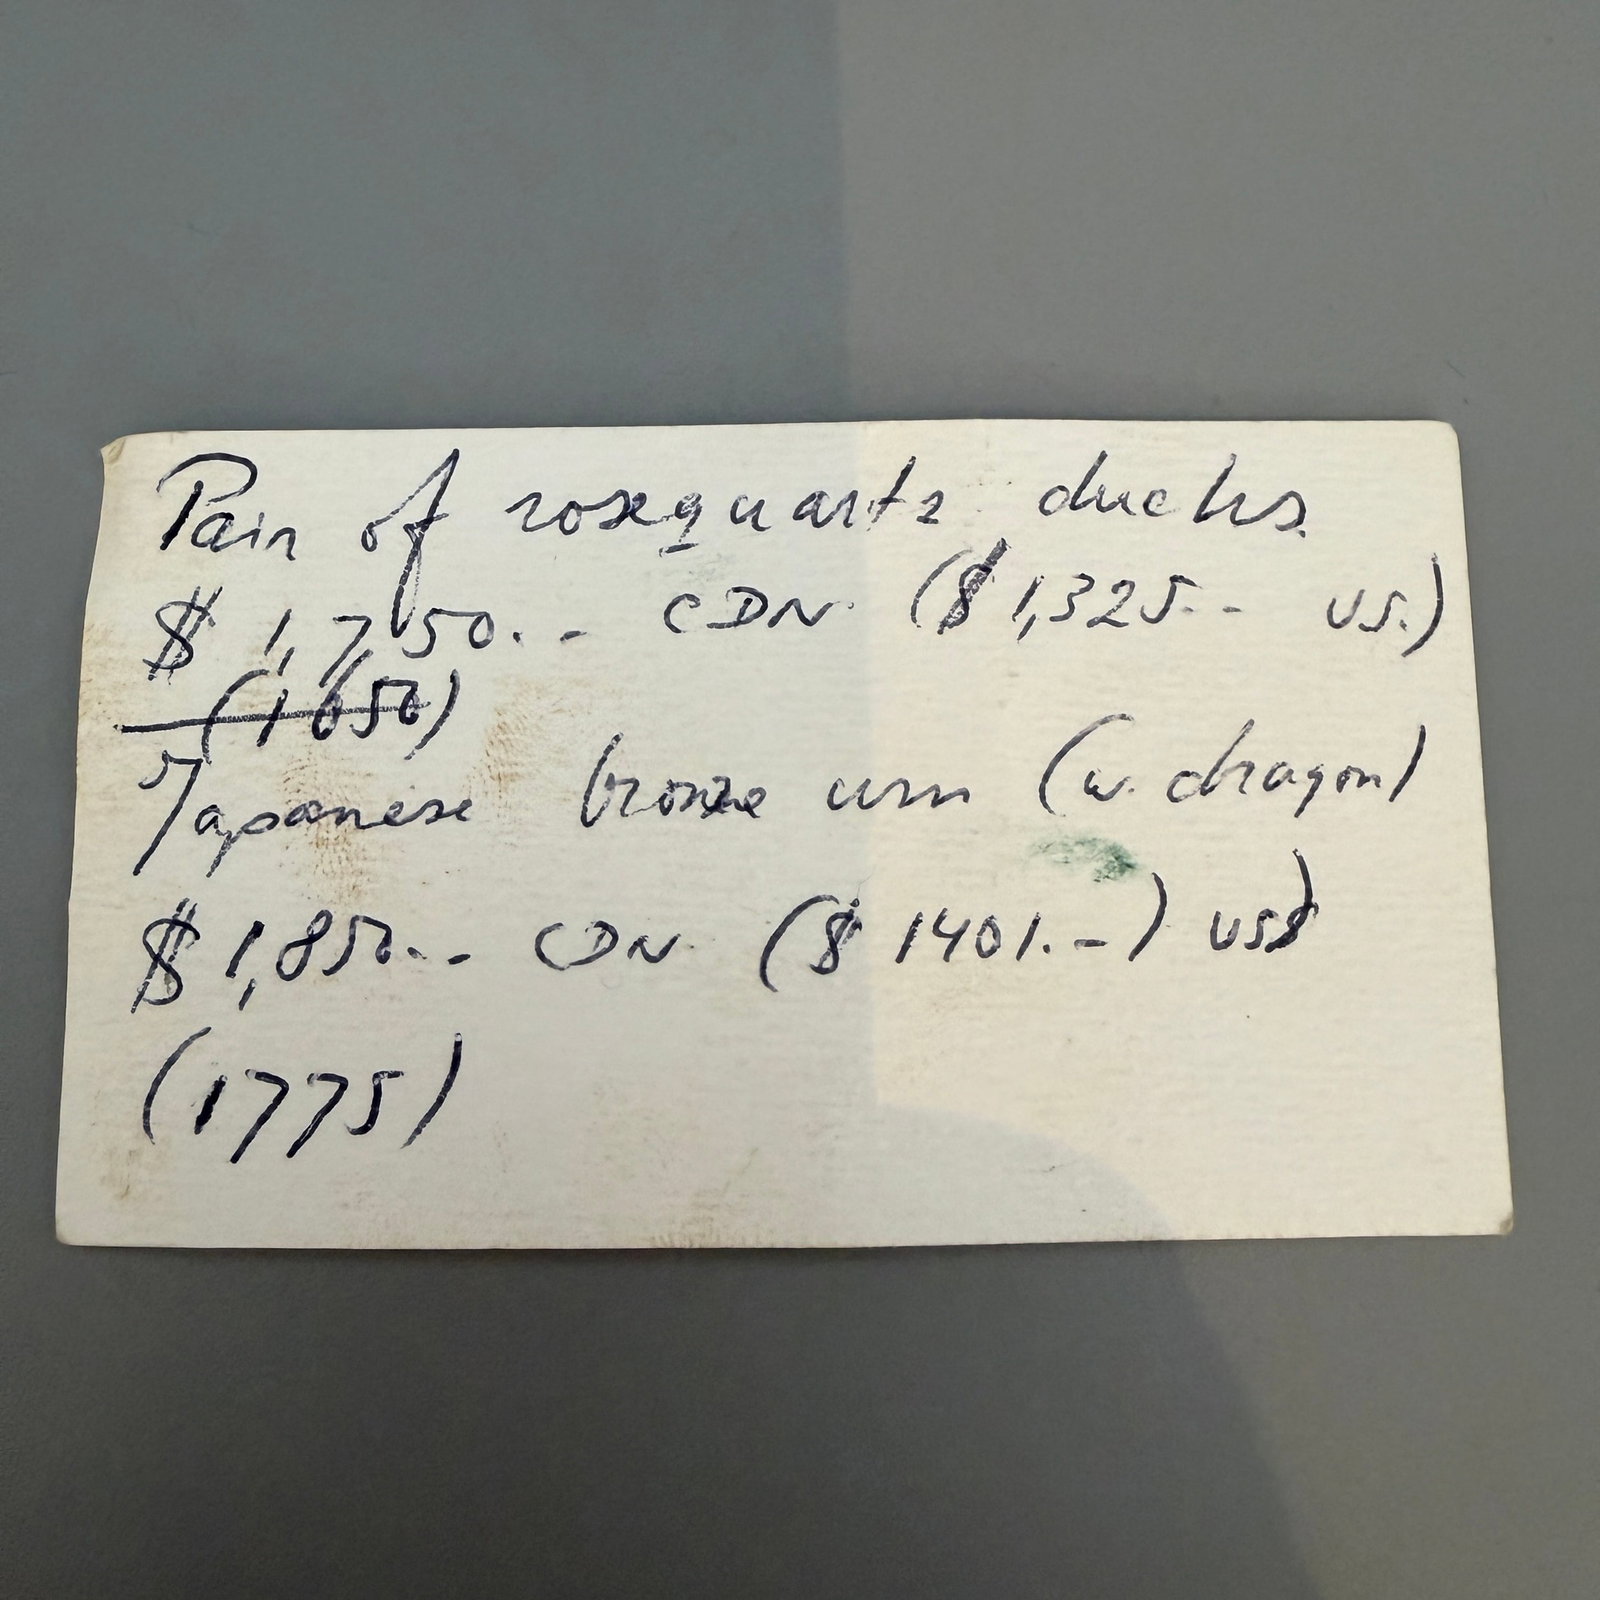 Pair of rosequartz ducks
$ 1,750.- CDN ($ 1,325.- US.)
(1650)
Japanese bronze urn (w. dragon)
$ 1,850.- CDN ($ 1401.-) US$
(1775)